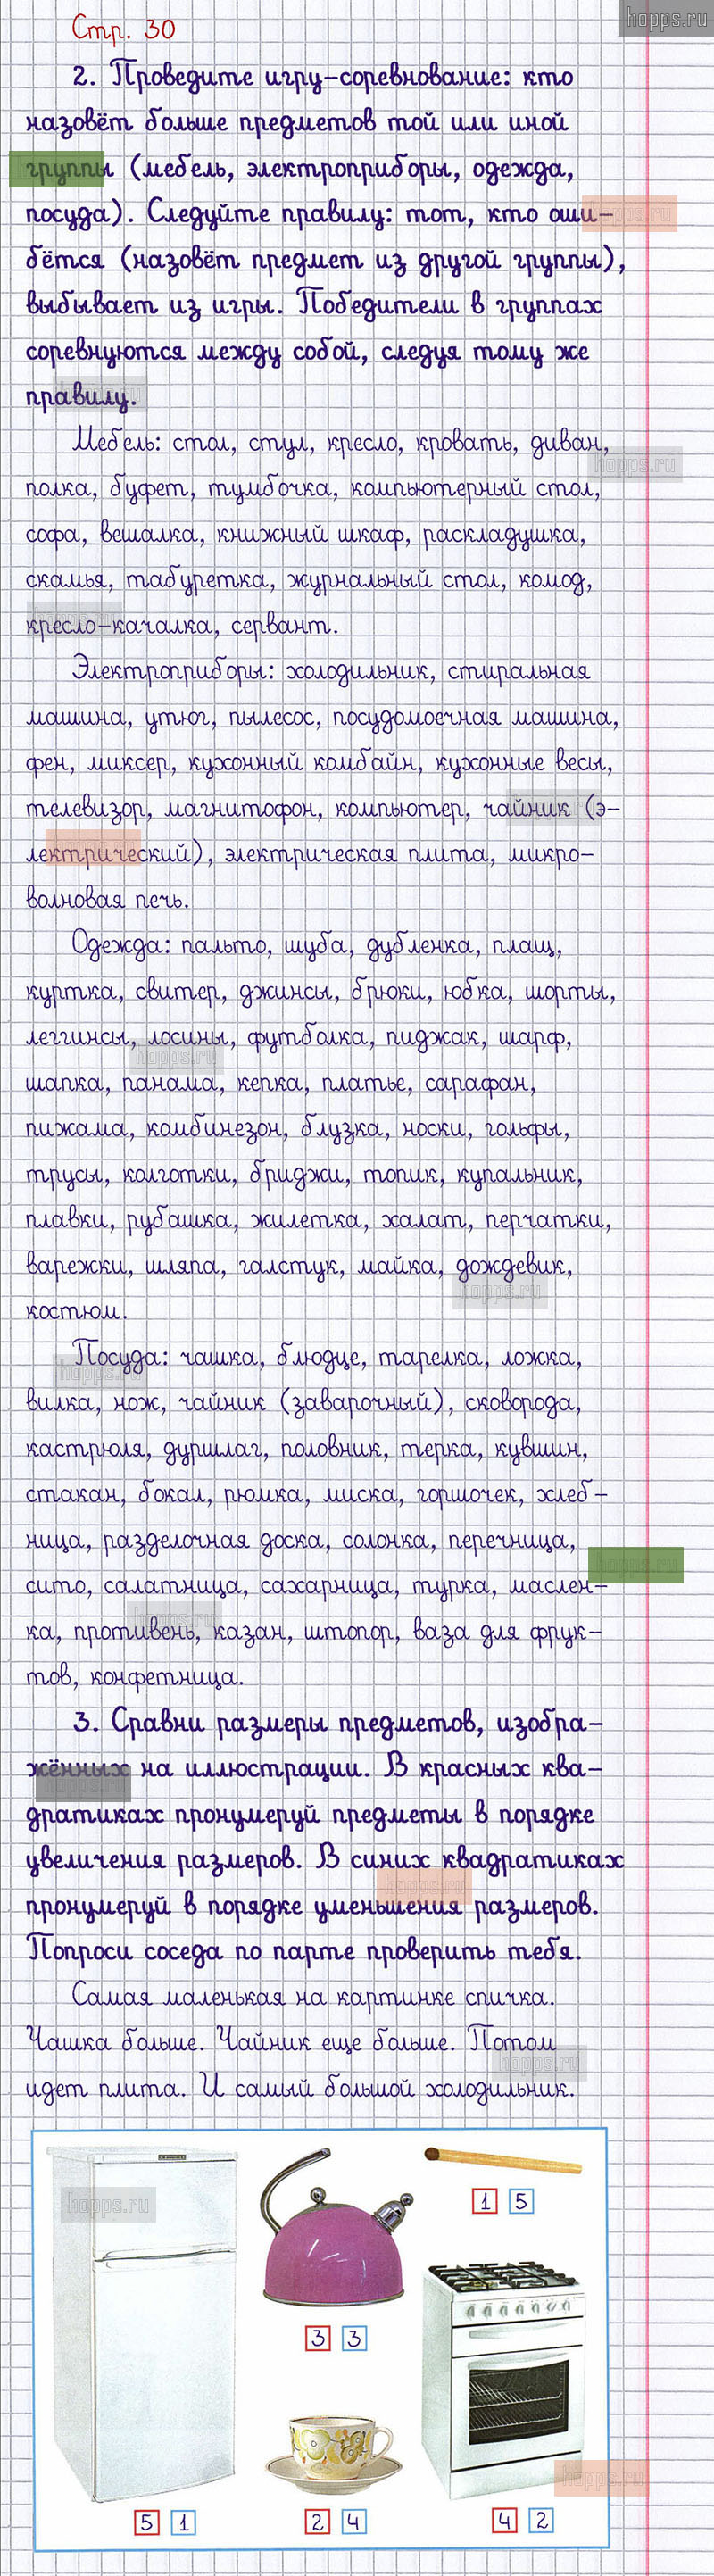 hopps.ru
Стр. 30
2. Проведите игру-соревнование: кто
назовёт больше предметов той или иной
группы (мебель, электроприборы, одежда,
посуда). Следуйте правилу: тот, кто оши-
бётся (назовёт предмет из другой группы),
выбывает из игры. Победители в группах
соревнуются между собой, следуя тому же
правилу.
Мебель: стол, стул, кресло, кровать, диван,
полка, буфет, тумбочка, компьютерный стол,
софа, вешалка, книжный шкаф, раскладушка,
скамья, табуретка, журнальный стол, комод,
кресло-качалка, сервант.
Электроприборы: холодильник, стиральная
машина, утюг, пылесос, посудомоечная машина,
фен, миксер, кухонный комбайн, кухонные весы,
телевизор, магнитофон, компьютер, чайник (э-
лектрический), электрическая плита, микро-
волновая печь.
Одежда: пальто, шуба, дубленка, плащ,
куртка, свитер, джинсы, брюки, юбка, шорты,
леггинсы, лосины, футболка, пиджак, шарф,
шапка, панама, кепка, платье, сарафан,
пижама, комбинезон, блузка, носки, гольфы,
трусы, колготки, бриджи, топик, купальник,
плавки, рубашка, жилетка, халат, перчатки,
варежки, шляпа, галстук, майка, дождевик,
костюм.
Посуда: чашка, блюдце, тарелка, ложка,
вилка, нож, чайник (заварочный), сковорода,
кастрюля, дуршлаг, половник, терка, кувшин,
стакан, бокал, рюмка, миска, горшочек, хлеб-
ница, разделочная доска, солонка, перечница,
сито, салатница, сахарница, турка, маслен-
ка, противень, казан, штопор, ваза для фрук-
тов, конфетница.
3. Сравни размеры предметов, изобра-
жённых на иллюстрации. В красных ква-
дратиках пронумеруй предметы в порядке
увеличения размеров. В синих квадратиках
пронумеруй в порядке уменьшения размеров.
Попроси соседа по парте проверить тебя.
Самая маленькая на картинке спичка.
Чашка больше. Чайник еще больше. Потом
идет плита. И самый большой холодильник.
1 5
3 3
5 1
2 4
4 2